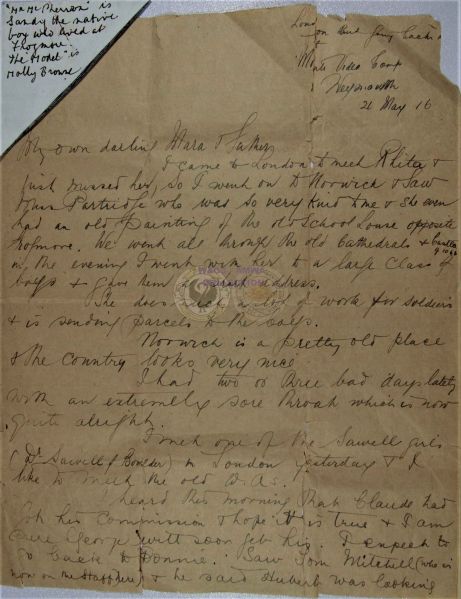 "Mr McPherson" is
Sandy the native
boy who lived at
Frogmore.
The "Model" is
Molly Browne
London But going back to
Monte Video Camp
Weymouth
21 May 16
My own darling Mara & Father
I came to London to meet Rlita &
just missed her, so I went on to Norwich & saw
Miss Partridge who was so very kind to me & she even
had an old painting of the old School House opposite
Frogmore. We went all through the old Cathedrals & Castle
in the evening I went with her to a large class of
boys & gave them address.
She does such a lot of work for soldiers
& is sending parcels to the boys.
Norwich is a pretty old place
& the country looks very nice
I had two or three bad days lately
with an extremely sore throat which is now
quite alright.
I met one of the Sawell girls
(Dr Sawell of Boulder) in London yesterday & I
like to meet the old W.A's.
I heard this morning that Claude had
got his commission & hope it is true & I am
sure George will soon get his. I expect to
go back to Donnie. Saw Tom Mitchell (who is
now on the Staff here) & he said Hubert was looking